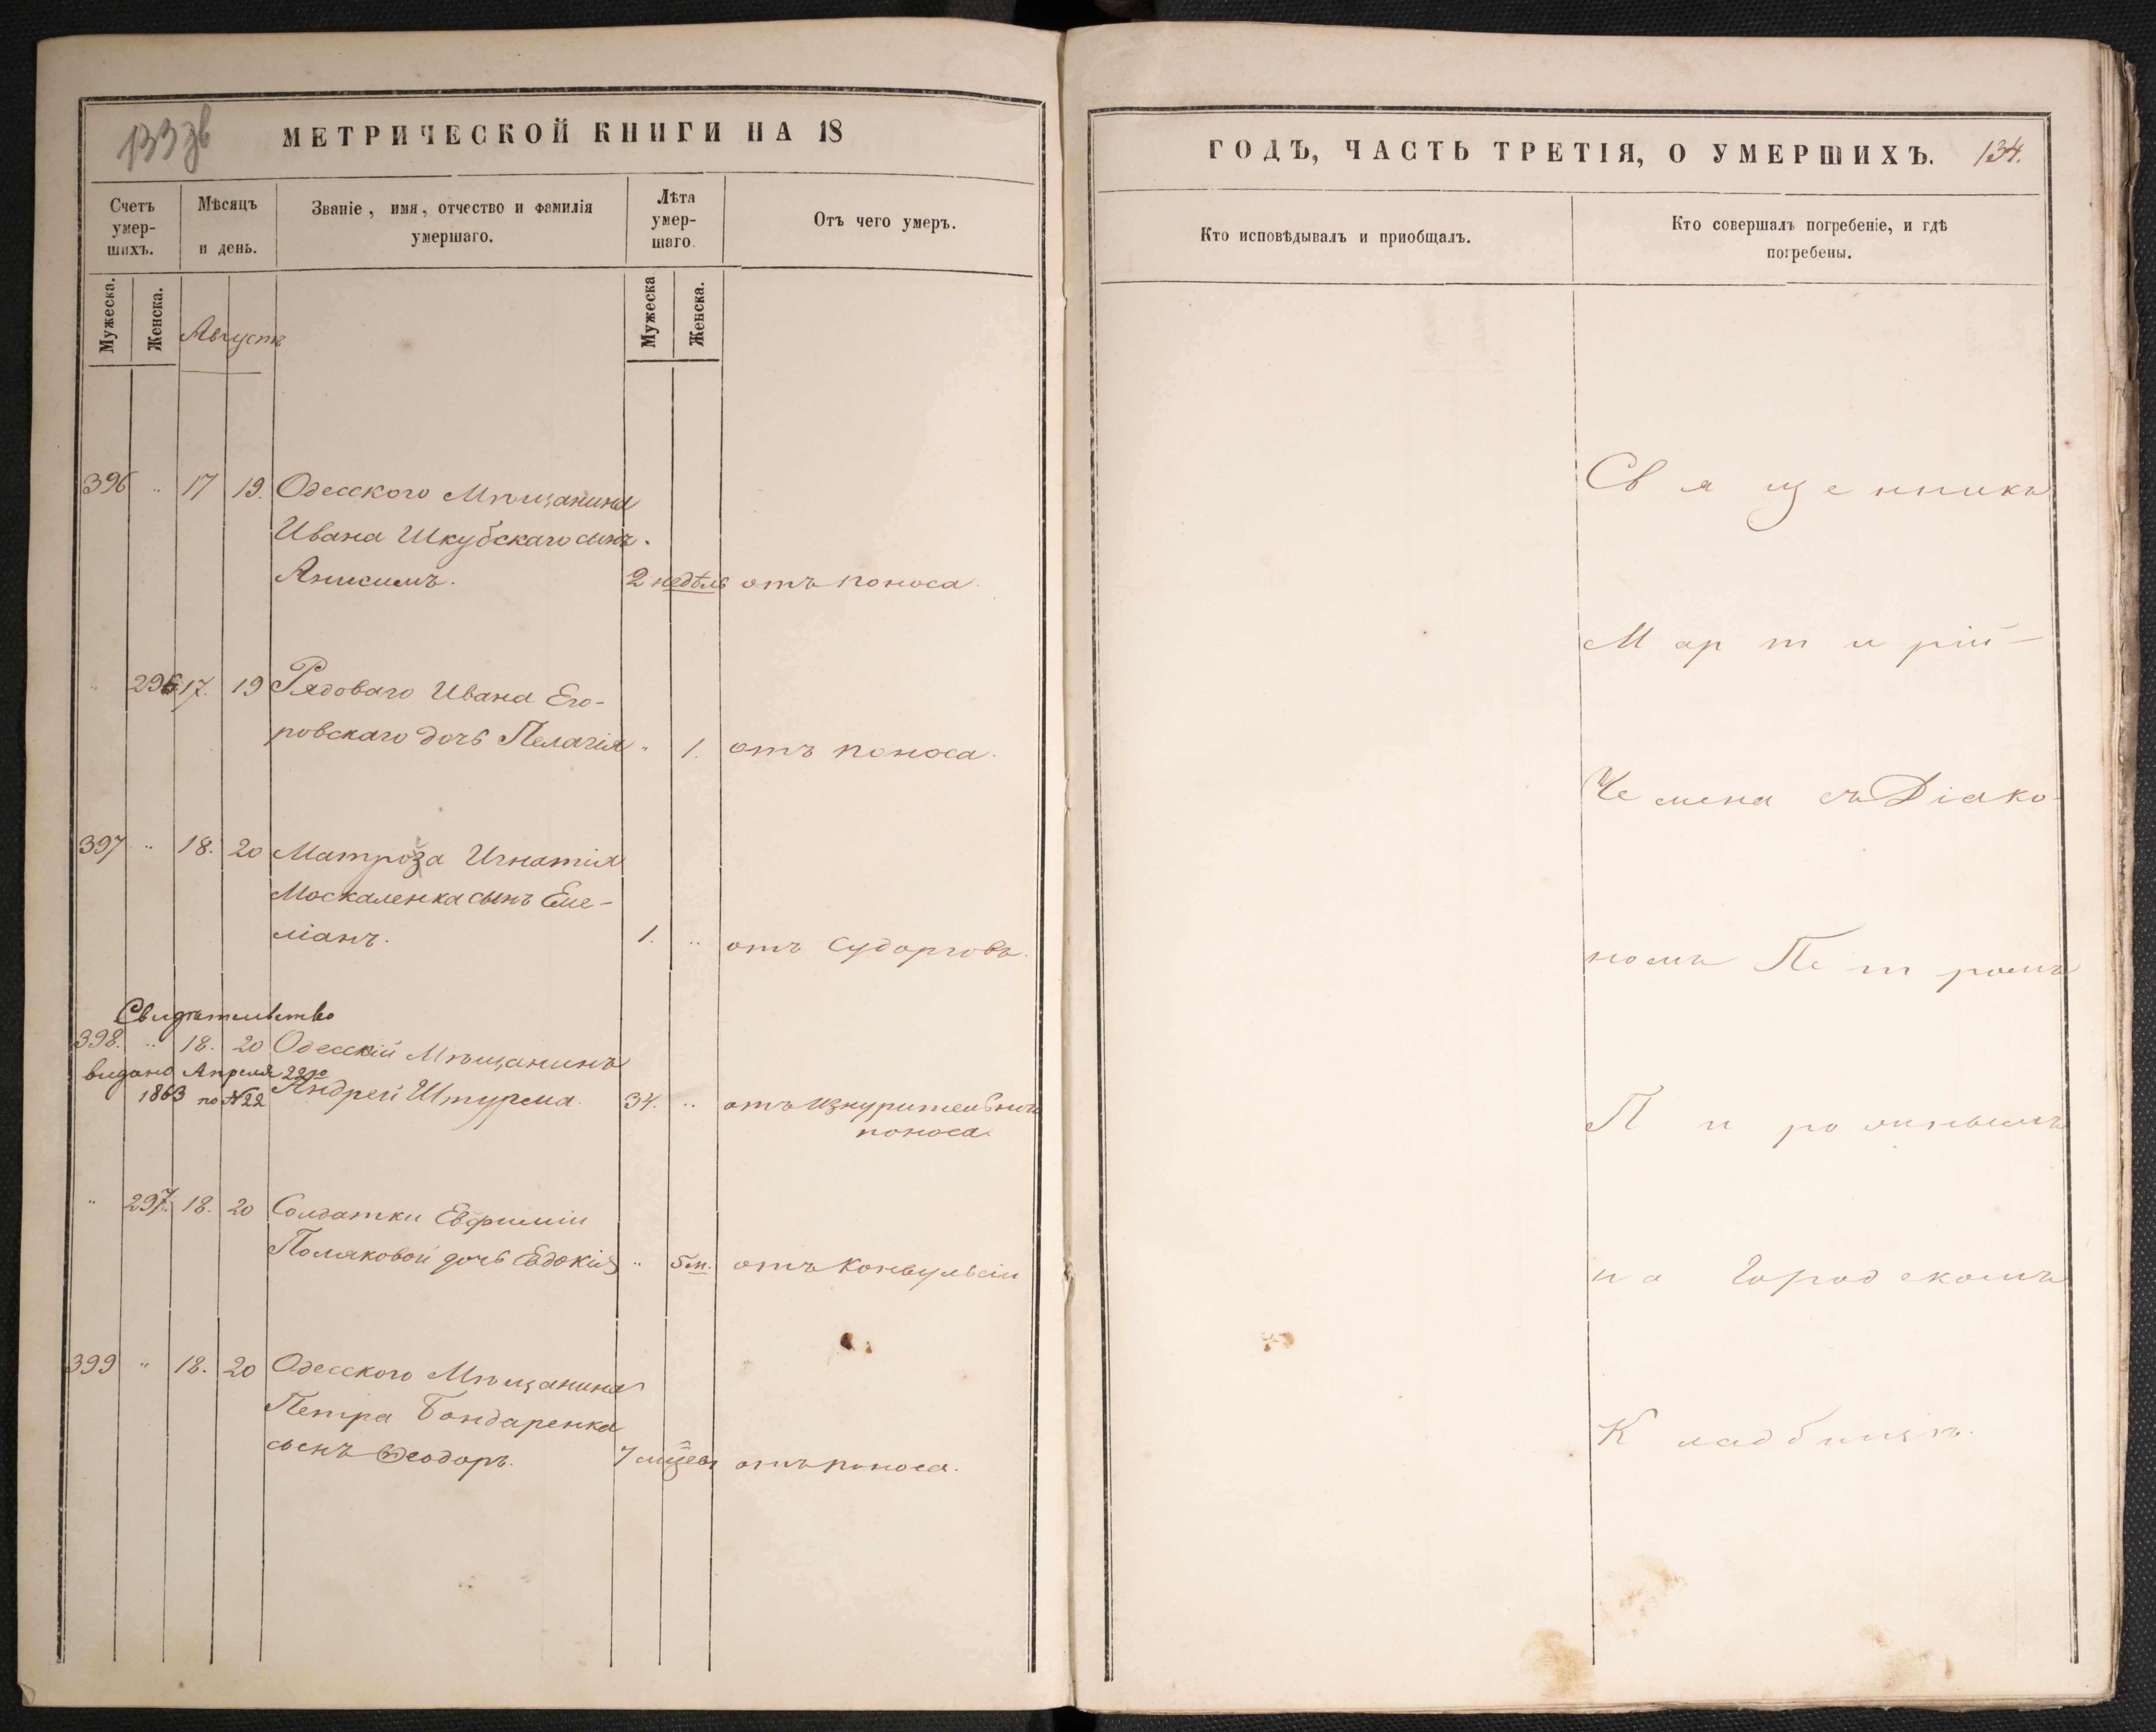 133зв
МЕТРИЧЕСКОЙ КНИГИ НА 18
Счетъ умер-шихъ.
Мѣсяцъ и день.
Званіе, имя, отчество и фамилія умершаго.
Лѣта умер-шаго.
Отъ чего умеръ.
Мужеска.
Женска.
Августъ
Мужеска
Женска.
396 " 17 19. Одесского Мѣщанина
Ивана Шкубскаго сынъ
Анисимъ. 2 недѣль отъ поноса.
" 296 17. 19 Рядоваго Ивана Его-
ровскаго дочь Пелагія " 1. отъ поноса.
397 " 18. 20 Матроза Игнатія
Москаленка сынъ Еме-
ліанъ. 1. " отъ Судорговъ.
Свидѣтельство
398. " 18. 20 Одесскій Мѣщанинъ
видано Апреля 22го
1863 по №22
Андрей Штурма. 34. " отъ изнурительнаго
поноса.
" 297. 18. 20 Солдатки Евфиміи
Поляковой дочь Евдокія " 5 м. отъ Конвульсіи
399 " 18. 20 Одесского Мѣщанина
Петра Бондаренка
сынъ Ѳеодоръ. 7 отъ поноса.
ГОДЪ, ЧАСТЬ ТРЕТІЯ, О УМЕРШИХЪ. 134.
Кто исповѣдывалъ и пріобщалъ.
Кто совершалъ погребеніе, и гдѣ погребены.
Священникъ
Мартирій
Чемена съ Діако-
номъ Петромъ
на Городскомъ
Кладбищѣ.